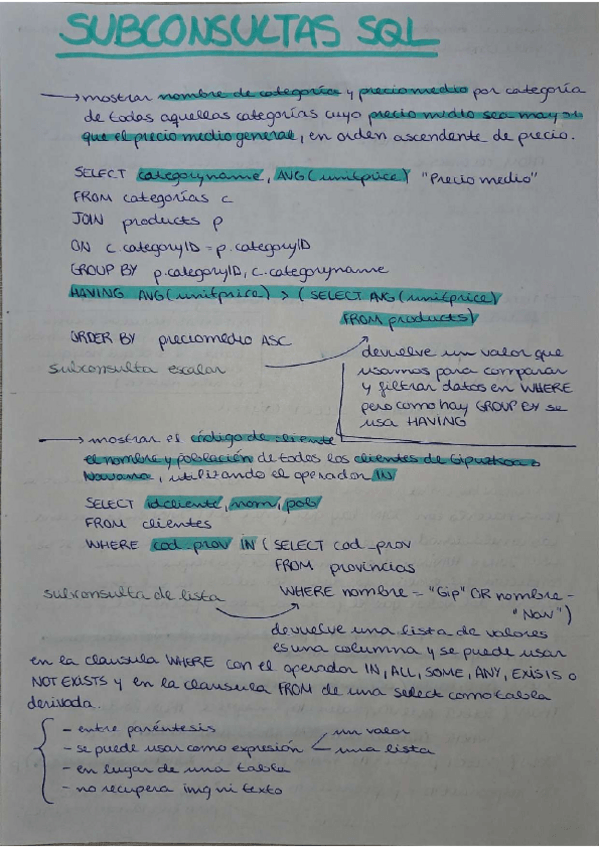 SUBCONSULTAS SQL
→ mostrar nombre de categorías y precio medio por categoría
de todas aquellas categorías cuyo precio medio sea mayor
que el precio medio general, en orden ascendente de precio.
SELECT categoryname, AVG(unitprice) "Precio medio"
FROM categorías c
JOIN products p
ON c.categoryID = p.categoryID
GROUP BY p.categoryID, c.categoryname
HAVING AVG(unitprice) > (SELECT AVG(unitprice)
FROM products)
ORDER BY preciomedio ASC
subconsulta escalar
devuelve un valor que
usamos para comparar
y filtrar datos en WHERE
pero como hay GROUP BY se
usa HAVING
→ mostrar el código de cliente
el nombre y población de todos los clientes de Gipuzkoa o
Navarra, utilizando el operador IN
SELECT idcliente, nom, pob
FROM clientes
WHERE cod_prov IN (SELECT cod_prov
FROM provincias
WHERE nombre = "Gip" OR nombre =
"Nav")
subconsulta de lista
devuelve una lista de valores
es una columna y se puede usar
en la clausula WHERE con el operador IN, ALL, SOME, ANY, EXISIS o
NOT EXISTS y en la clausula FROM de una select como tabla
derivada.
- entre paréntesis
- se puede usar como expresión < un valor
una lista
- en lugar de una tabla
- no recupera img ni texto